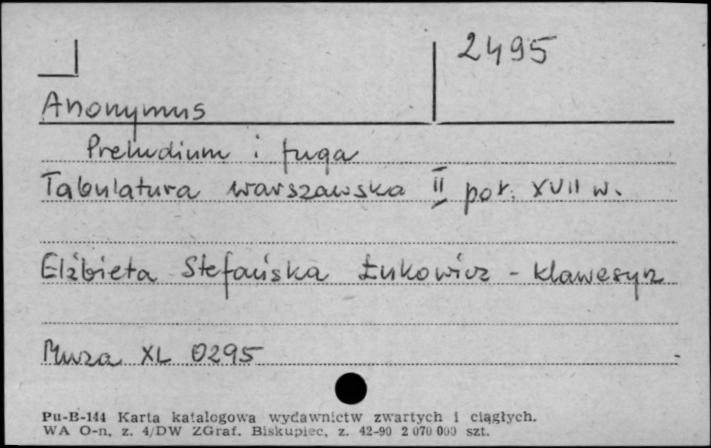 2495
Anonymus
Preludium i fuga
Tabulatura warszawska II poł. XVII w.
Elżbieta Stefańska Łukowicz - klawesyn
Muza XL 0295
Pu-B-144 Karta katalogowa wydawnictw zwartych i ciągłych.
WA O-n, z. 4/DW ZGraf. Biskupiec, z. 42-90 2 070 000 szt.